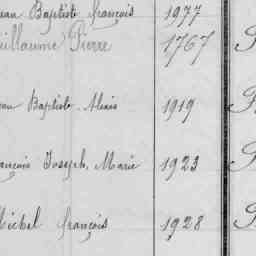 ean Baptiste françois 1977
uillaume Pierre 1767
ean Baptiste Alexis 1919
ançois Joseph Marie 1923
Michel françois 1928